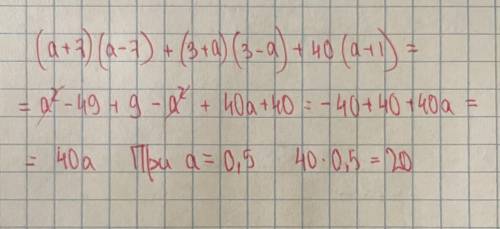 (a+7)(a-7) + (3+a)(3-a) + 40(a+1) =
= a² - 49 + 9 - a² + 40a + 40 = -40 + 40 + 40a =
= 40a При a = 0,5 40 · 0,5 = 20